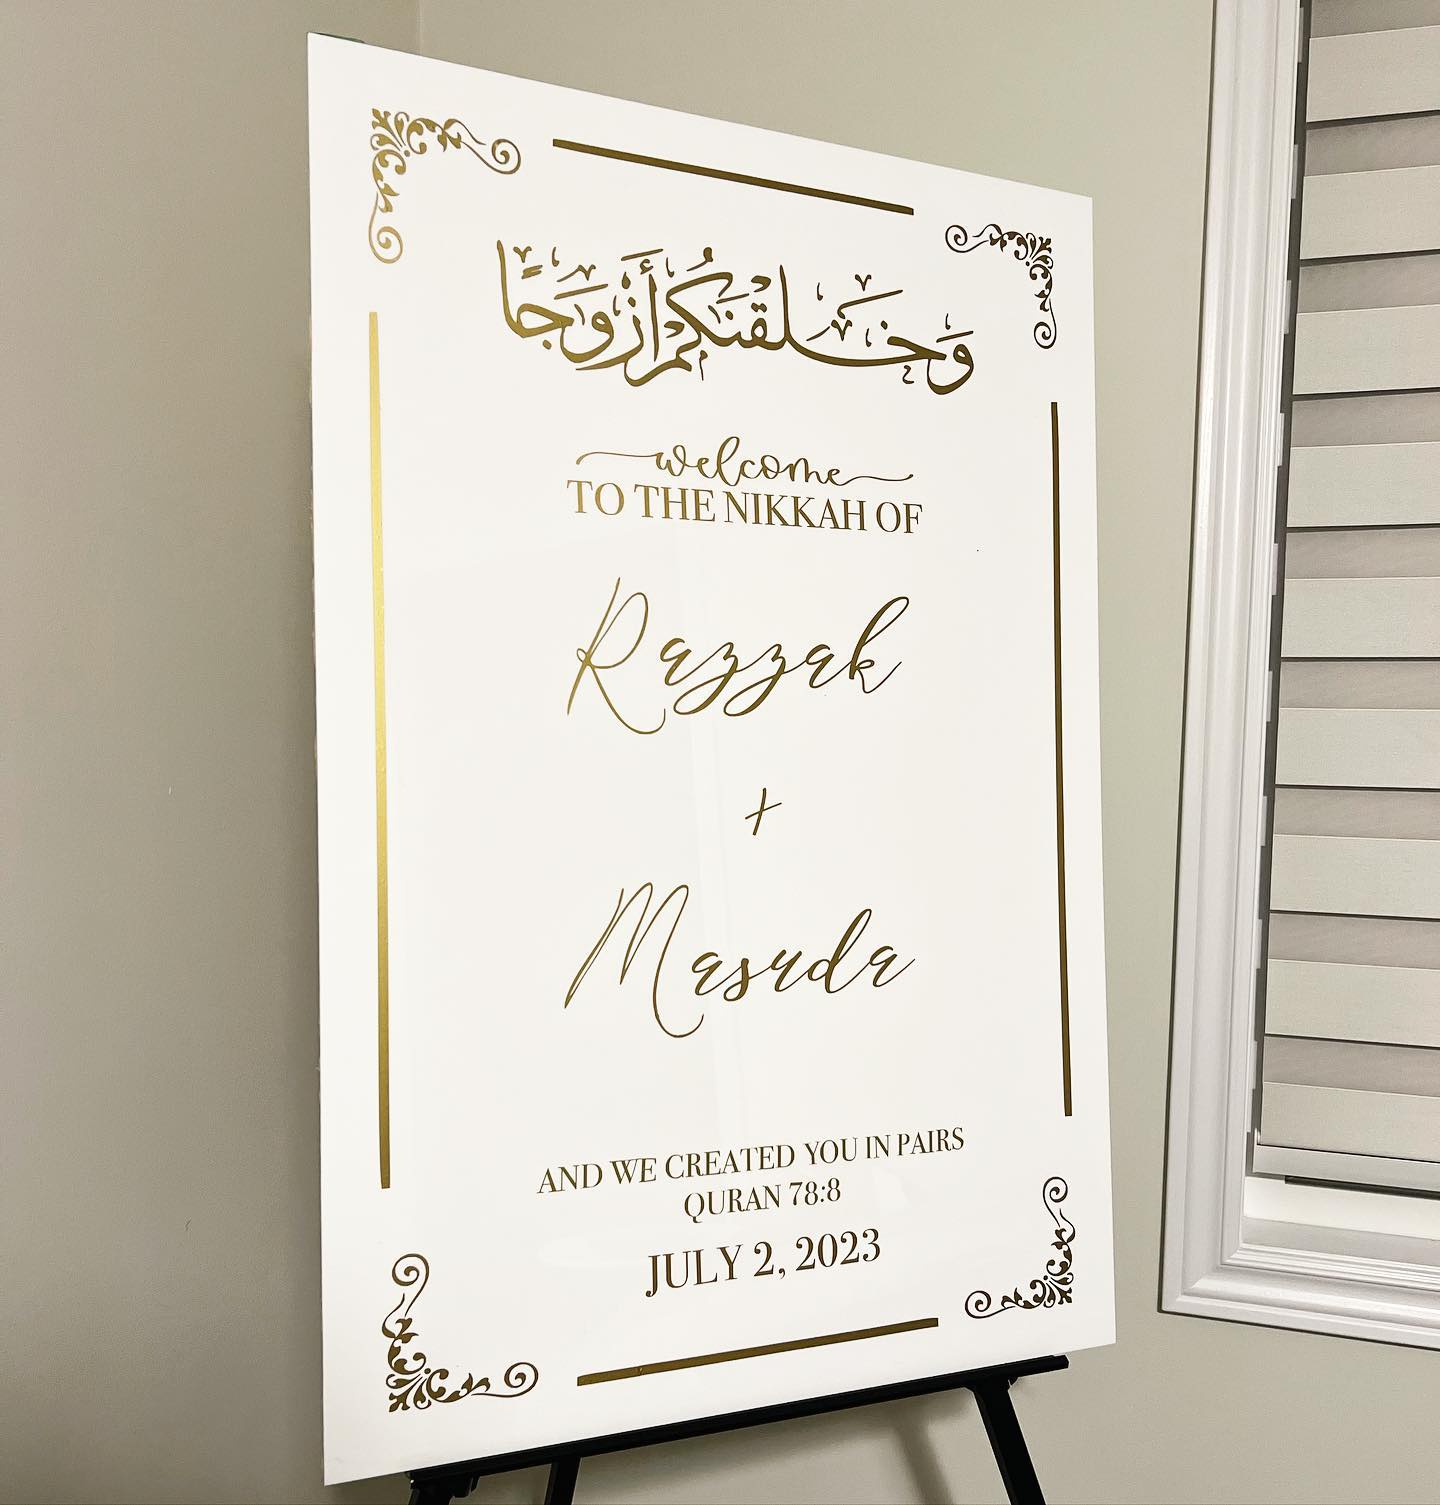 وَخَلَقْنَكُمْ أَزْوَجًا
welcome
TO THE NIKKAH OF
Razzak
+
Masuda
AND WE CREATED YOU IN PAIRS
QURAN 78:8
JULY 2, 2023